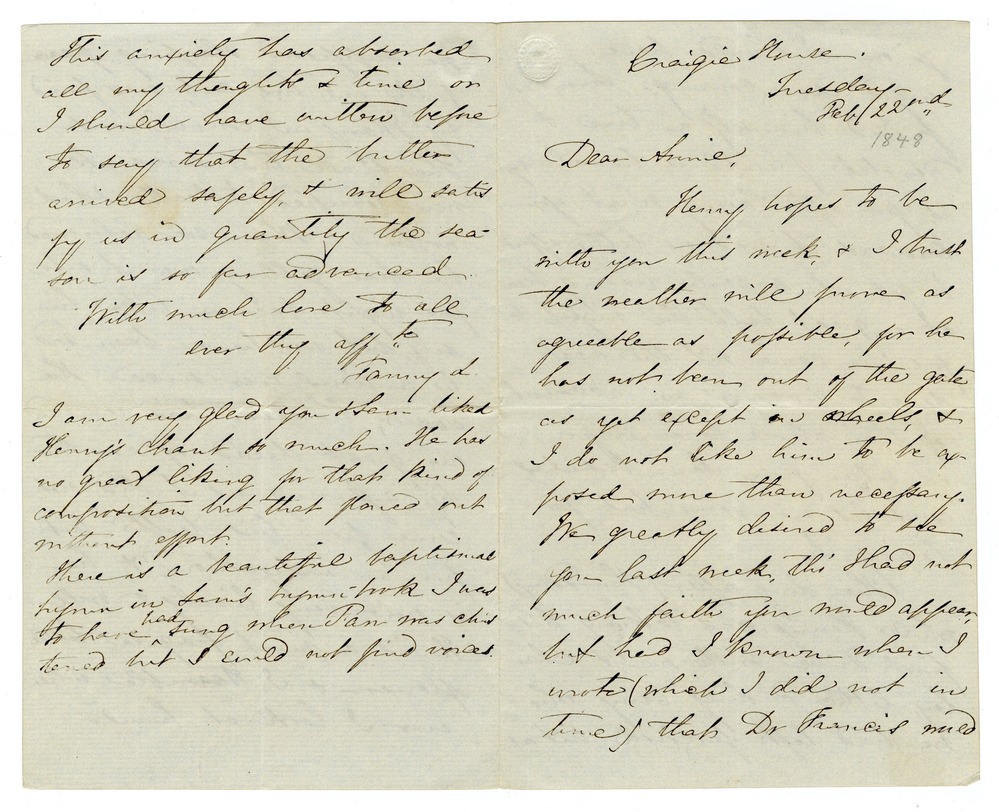 Craigie House.
Tuesday
Feb/ 22nd
1848
Dear Annie,
Henry hopes to be
with you this week, & I trust
the weather will prove as
agreeable as possible, for he
has not been out of the gate
as yet except in wheels, &
I do not like him to be ex-
posed more than necessary.
We greatly desired to see
you last week, tho' I had not
much faith you would appear,
but had I known when I
wrote (which I did not in
time) that Dr Francis would
This anxiety has absorbed
all my thoughts & time or
I should have written before
to say that the butter
arrived safely, & will satis
fy us in quantity the sea-
son is so far advanced.
With much love to all
ever thy affte
Fanny L.
I am very glad you & Sam liked
Henry's chant so much. He has
no great liking for that kind of
composition but that flowed out
without effort.
There is a beautiful baptismal
hymn in Sam's hymn-book I was
to have had sung when Parr was chris
tened but I could not find voices.